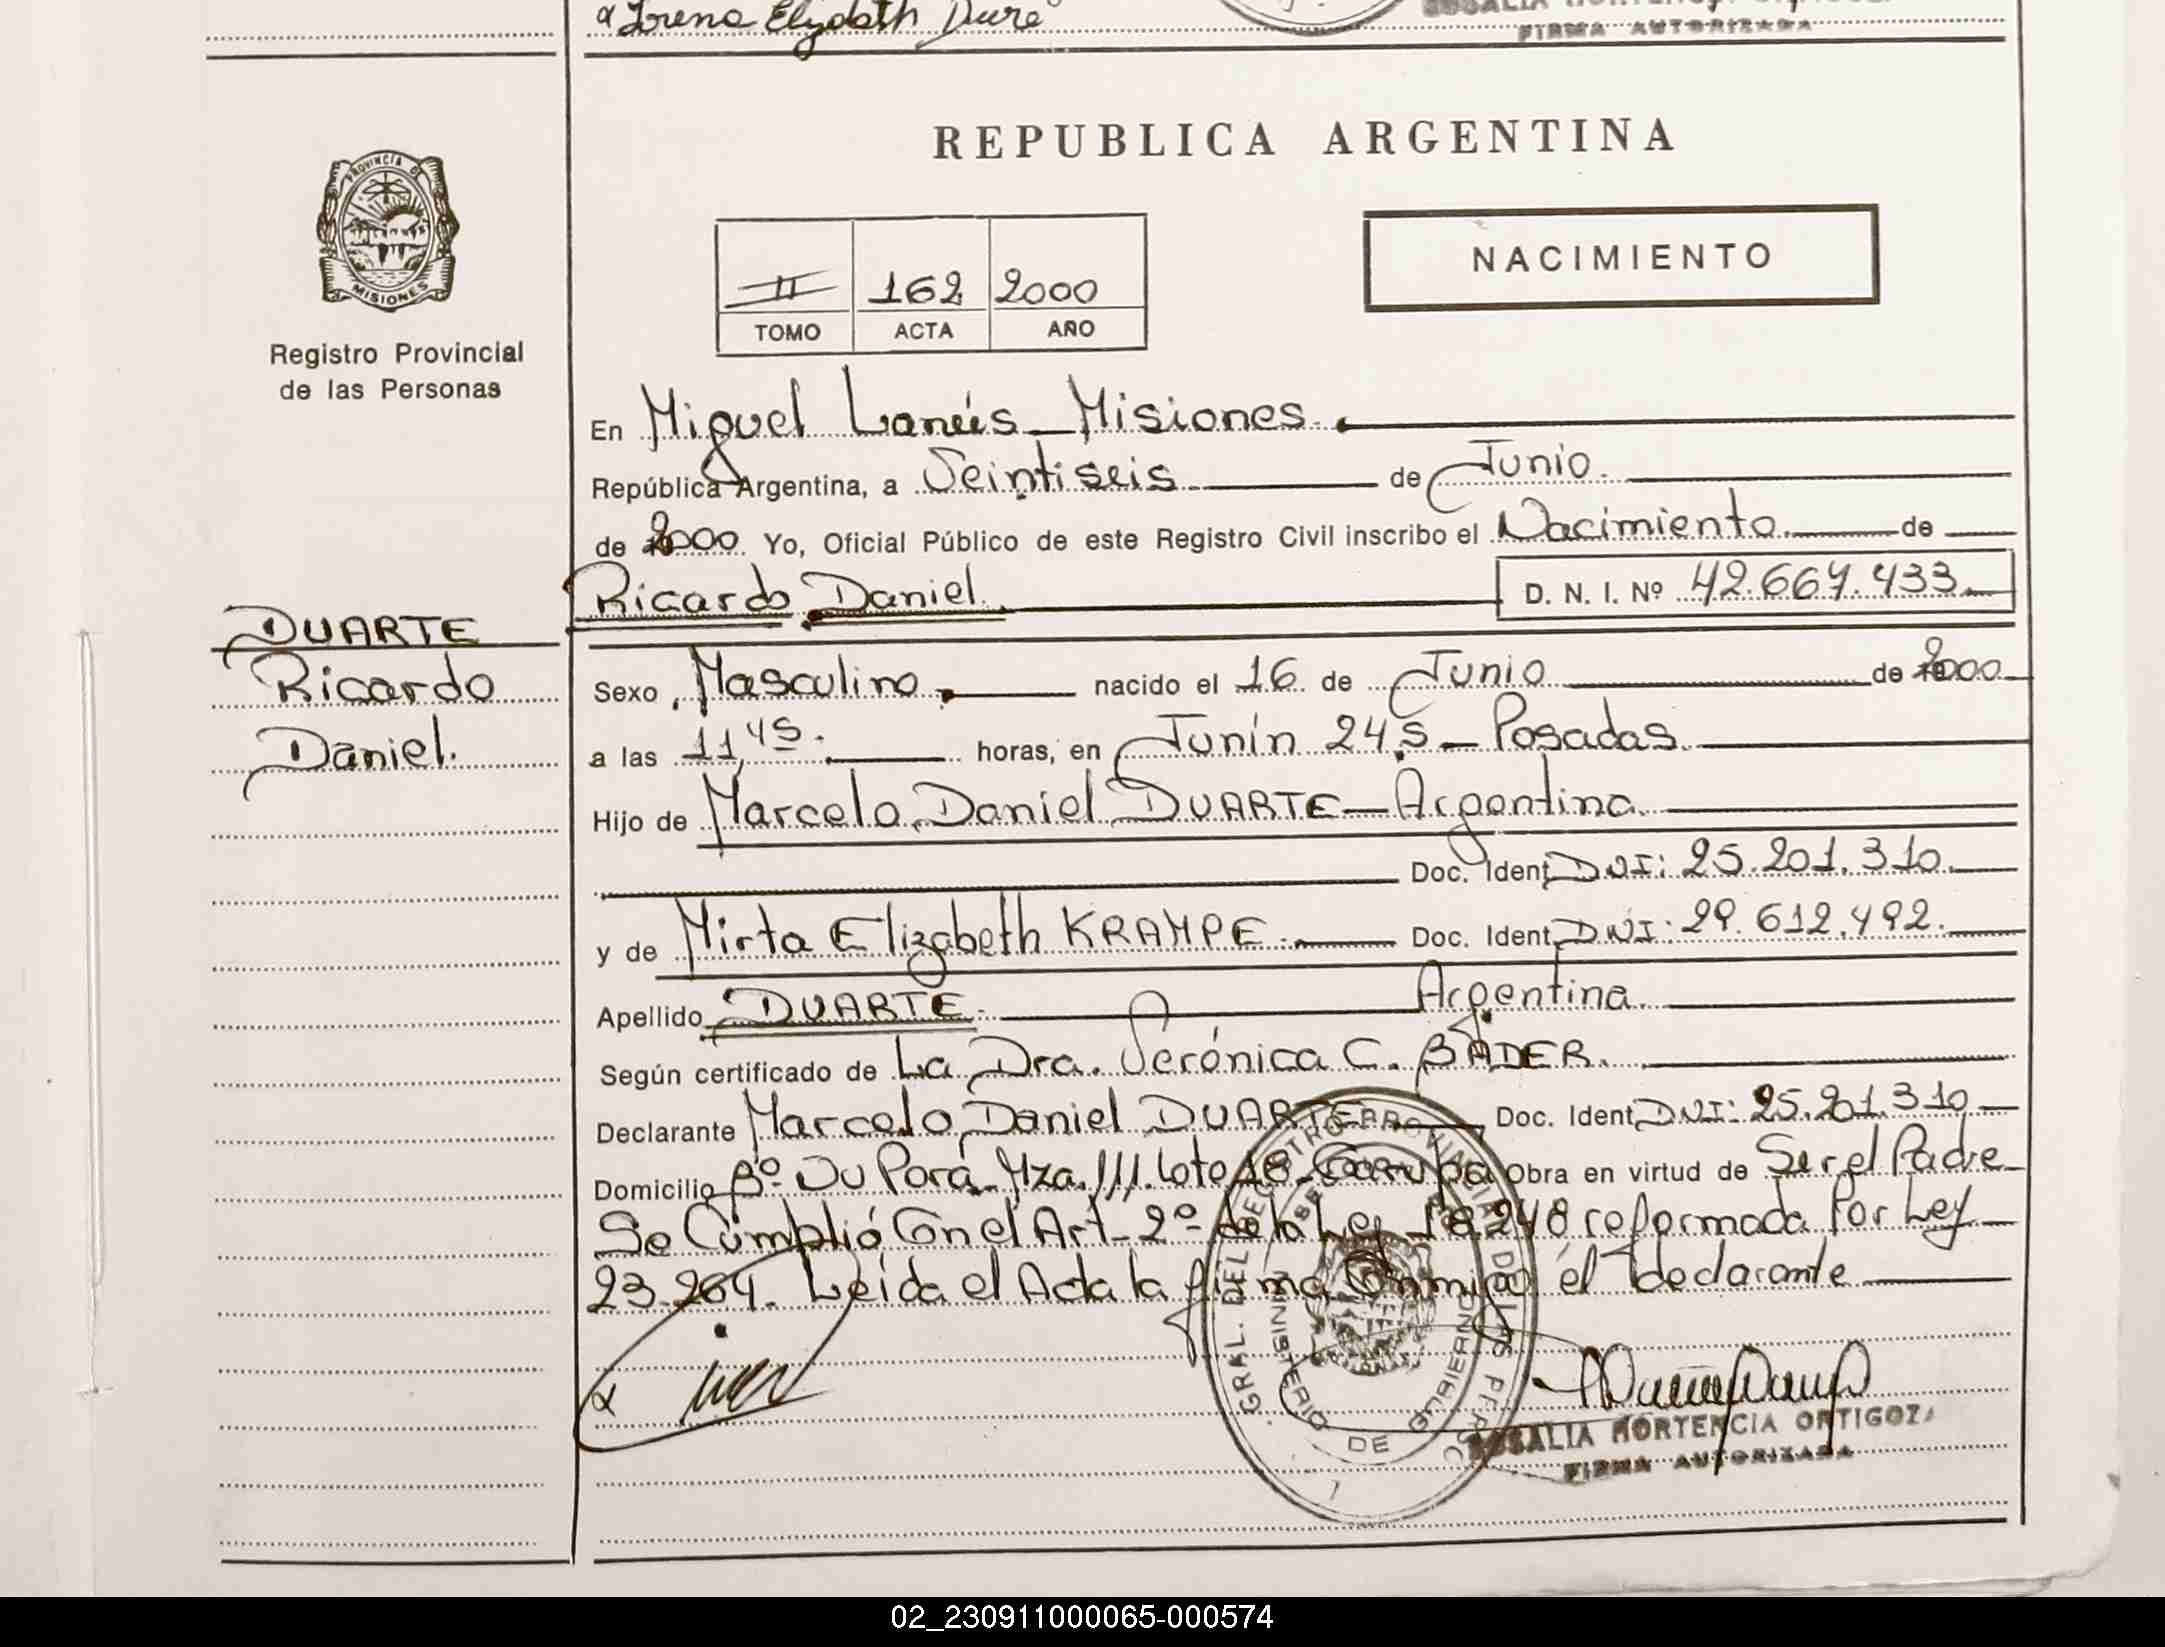 & Lorena Elizabeth Duré
FIRMA AUTORIZADA
REPUBLICA ARGENTINA
PROVINCIA DE
MISIONES
Registro Provincial
de las Personas
NACIMIENTO
II 162 2000
TOMO ACTA AÑO
En Miguel Lanús - Misiones.
República Argentina, a Veintiseis de Junio.
de 2000 Yo, Oficial Público de este Registro Civil inscribo el Nacimiento de
Ricardo Daniel. D. N. I. Nº 42.667.433
DUARTE
Ricardo
Daniel.
Sexo Masculino. nacido el 16 de Junio de 2000
a las 11,45. horas, en Junín 245 - Posadas.
Hijo de Marcelo Daniel DUARTE - Argentina.
Doc. Ident. DNI: 25.201.310.
y de Mirta Elizabeth KRAMPE. Doc. Ident. DNI: 29.612.492.
Apellido DUARTE. Argentina.
Según certificado de La Dra. Verónica C. BADER.
Declarante Marcelo Daniel DUARTE Doc. Ident. DNI: 25.201.310
Domicilio Bº Ñu Porá Mza. III. Lote 18 - Garupá Obra en virtud de Ser el Padre
Se Cumplió Con el Art. 2º de la Ley 18.248 reformada Por Ley
23.264. Leida el Acta la firma Conmigo el declarante
GRAL. DEL REGISTRO PROVINCIAL DE LAS PERSO
MINISTERIO DE GOBIERNO
ROSALIA HORTENCIA ORTIGOZA
FIRMA AUTORIZADA
02_230911000065-000574